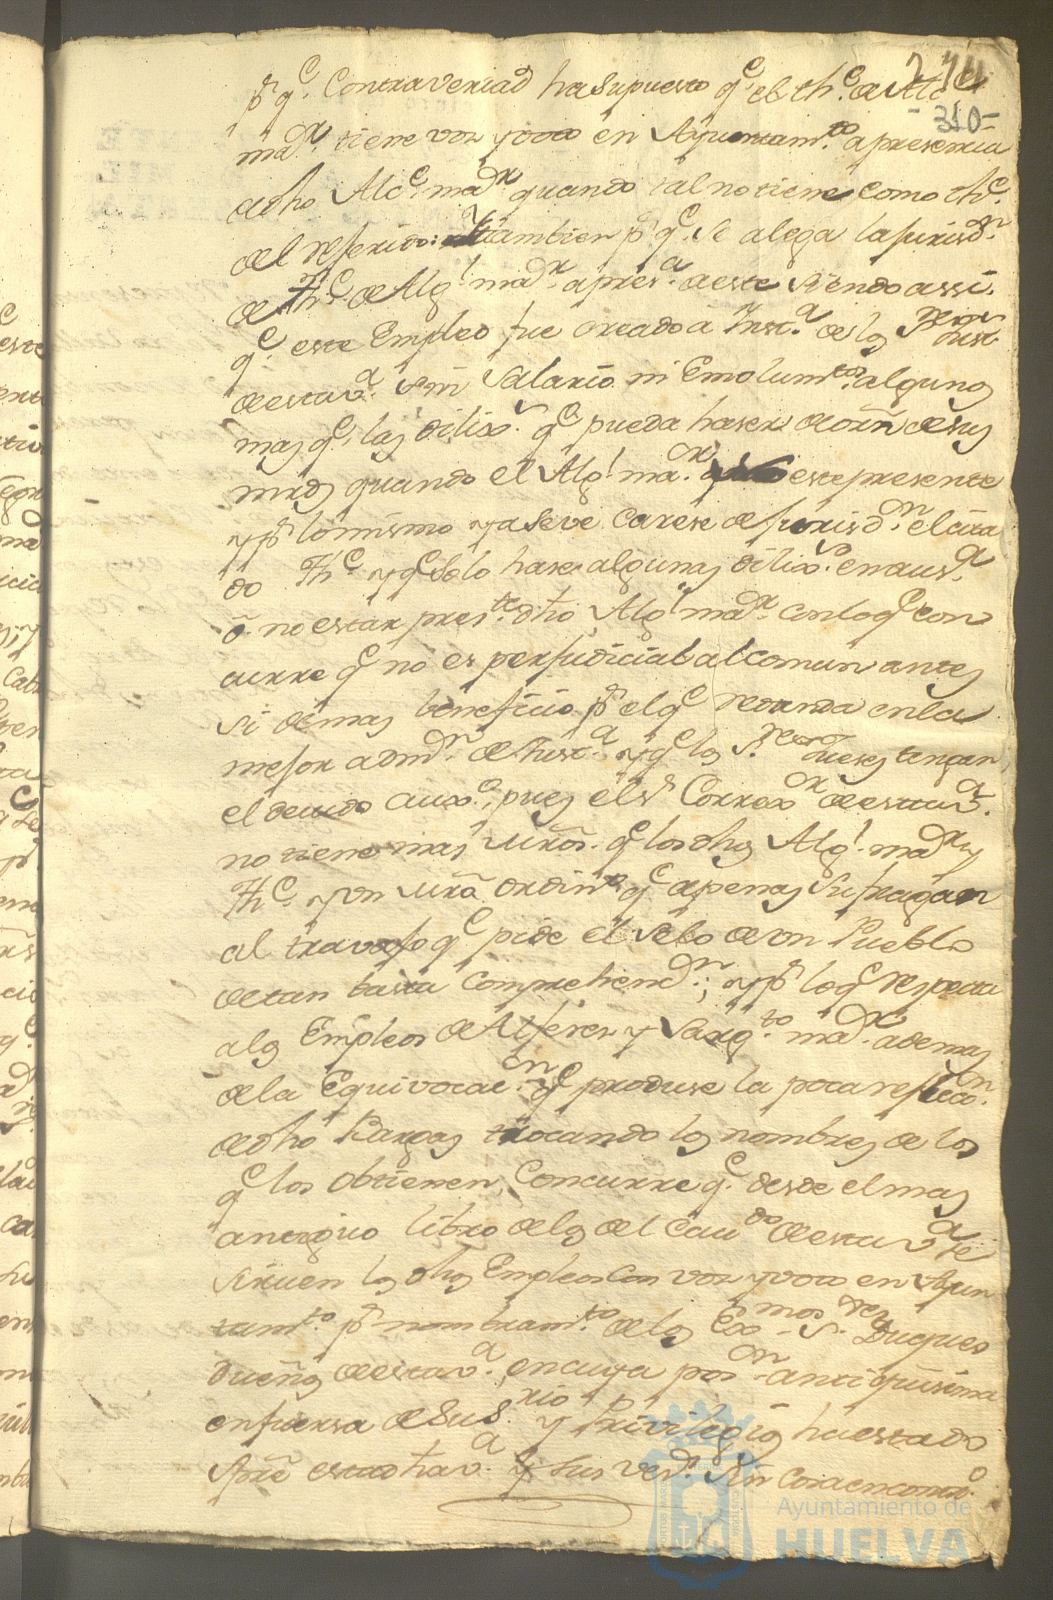 274
-310-
pr. qe. Contraverdad ha Supuesto qe. el the. de Alg
mar. tiene voz y voto en Ayuntamto. apresencia
de dho Algl. mar. quando tal no tiene como the.
del referido: tambien pr. qe. Se alega la Jurisdn.
de The. de Algl. mar. apresa. de este siendo assi.
qe. este Empleo fue creado a Insta. de los Sres. Just.
de esta va. sin Salario ni Emolumtos. algunos
mas qe. las dilixs. qe. pueda haser de orn. de sus
mrds quando el Algl. mar. este presente
y pr. lo mismo ya se ve carese de Jurisdn. el cita
do The. y qe. Solo hase algunas dilixs. en ausa.
o. no estar preste. dho Algl. mar. con lo qe. con
curre qe. no es perjudicial al comun antes
si de mas beneficio pr. el qe. redunda en la
mejor admn. de Justa. y qe. los Sres. Jueses tengan
el devido auxo.; pues el Sr. Corregor. de esta va.
no tiene mas Mros. qe. los dhos Algl. mar. y
The. y un Mro. ordino. qe. apenas Sufragan
al travajo qe. pide el Selo de un Pueblo
de tan basta Comprehencn.; y pr. lo qe. respecta
a los Empleos de Alferes y Sargto. mar. ademas
de la Equivocacn. qe. produse la poca reflecn.
de dho Bargas trocando los nombres de los
qe. los obtienen, Concurre qe. desde el mas
antiguo libro de los del Cavdo. de esta va. se
sirven los dhos Empleos con voz y voto en Ayun
tamto. pr. nombramto. de los Exmos. Sres. Duques
Dueños de esta va. en cuya poson. antiquisima
enfuersa de Sus Privilegios ha estado
Spre. esta dha va. y sus veds. Sin Cosa encontro.
Ayuntamiento de
HUELVA